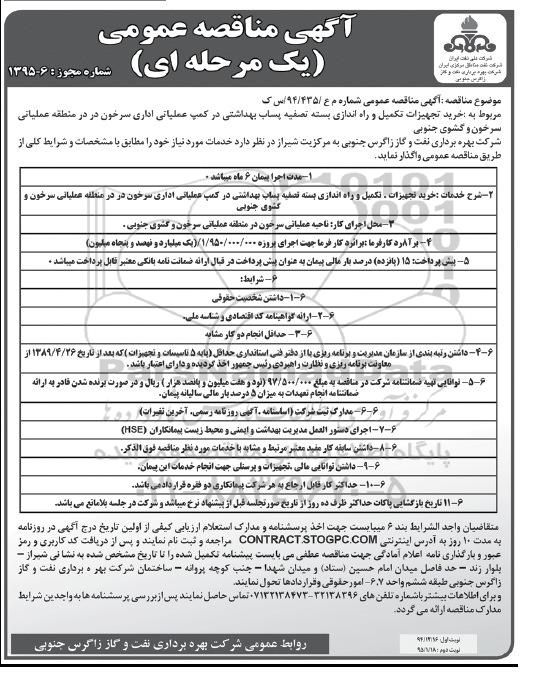 آگهی مناقصه عمومی
(یک مرحله ای)
شماره مجوز : ۶-۱۳۹۵
شرکت ملی نفت ایران
شرکت نفت مناطق مرکزی ایران
شرکت بهره برداری نفت و گاز
زاگرس جنوبی
موضوع مناقصه :آگهی مناقصه عمومی شماره م ع /۹۴/۴۳۵/س ک
مربوط به :خرید تجهیزات تکمیل و راه اندازی بسته تصفیه پساب بهداشتی در کمپ عملیاتی اداری سرخون در در منطقه عملیاتی
سرخون و گشوی جنوبی
شرکت بهره برداری نفت و گاز زاگرس جنوبی به مرکزیت شیراز در نظر دارد خدمات مورد نیاز خود را مطابق با مشخصات و شرایط کلی از
طریق مناقصه عمومی واگذار نماید.
۱-مدت اجرا پیمان ۶ ماه میباشد ۰
۲-شرح خدمات :خرید تجهیزات ، تکمیل و راه اندازی بسته تصفیه پساب بهداشتی در کمپ عملیاتی اداری سرخون در در منطقه عملیاتی سرخون و
گشوی جنوبی
۳-محل اجرای کار: ناحیه عملیاتی سرخون در منطقه عملیاتی سرخون و گشوی جنوبی .
۴- برآورد کارفرما :برآورد کارفرما جهت اجرای پروژه ۱/۹۵۰/۰۰۰/۰۰۰/(یک میلیارد و نهصد و پنجاه میلیون)
۵- پیش پرداخت: ۱۵ (پانزده) درصد بار مالی پیمان به عنوان پیش پرداخت در قبال ارائه ضمانت نامه بانکی معتبر قابل پرداخت میباشد ۰
۶- شرایط:
۱-۶-داشتن شخصیت حقوقی
۲-۶-ارائه گواهینامه کد اقتصادی و شناسه ملی.
۳-۶- حداقل انجام دو کار مشابه
۴-۶- داشتن رتبه بندی از سازمان مدیریت و برنامه ریزی یا از دفتر فنی استانداری حداقل (پایه ۵ تاسیسات و تجهیزات )که بعد از تاریخ ۱۳۸۹/۴/۲۶ از
معاونت برنامه ریزی و نظارت راهبردی رئیس جمهور اخذ گردیده و دارای اعتبار باشد .
۵-۶- توانایی تهیه ضمانتنامه شرکت در مناقصه به مبلغ ۹۷/۵۰۰/۰۰۰ (نود و هفت میلیون و پانصد هزار ) ریال و در صورت برنده شدن قادر به ارائه
ضمانتنامه انجام تعهدات به میزان ۵ درصد بار مالی سالیانه پیمان.
۶-۶- مدارک ثبت شرکت (اساسنامه .آگهی روزنامه رسمی. آخرین تغییرات)
۷-۶- اجرای دستور العمل مدیریت بهداشت و ایمنی و محیط زیست پیمانکاران (HSE)
۸-۶-داشتن سابقه کار مفید معتبر مرتبط و مشابه با خدمات مورد نظر مناقصه فوق الذکر.
۹-۶- داشتن توانایی مالی .تجهیزات و پرسنلی جهت انجام خدمات این پیمان.
۱۰-۶- حداکثر کار قابل ارجاع به هر شرکت پیمانکاری دو فقره قراردادمی باشد.
۱۱-۶ تاریخ بازگشایی پاکات حداکثر ظرف ده روز از تاریخ صورتجلسه قبل از پیشنهاد نرخ میباشد و شرکت در جلسه بلامانع می باشد.
متقاضیان واجد الشرایط بند ۶ میبایست جهت اخذ پرسشنامه و مدارک استعلام ارزیابی کیفی از اولین تاریخ درج آگهی در روزنامه
به مدت ۱۰ روز به آدرس اینترنتی CONTRACT.STOGPC.COM مراجعه و ثبت نام نمایند و پس از دریافت کد کاربری و رمز
عبور و بارگذاری نامه اعلام آمادگی جهت مناقصه عطفی می بایست پیشنامه تکمیل شده را تا تاریخ مشخص شده به نشانی شیراز –
بلوار زند – حد فاصل میدان امام حسین (ستاد) و میدان شهدا – جنب کوچه پروانه – ساختمان شرکت بهره برداری نفت و گاز
زاگرس جنوبی طبقه ششم واحد ۶.۷- امور حقوقی وقراردادها تحویل نمایند.
و برای اطلاعات بیشتر با شماره تلفن های ۳۲۱۳۸۳۹۶-۰۷۱۳۲۱۳۸۴۷۳ تماس حاصل نمایند پس از بررسی پرسشنامه ها به واجدین شرایط
مدارک مناقصه ارائه می گردد.
نوبت اول: ۹۴/۱۲/۱۶
نوبت دوم : ۹۵/۱/۱۸
روابط عمومی شرکت بهره برداری نفت و گاز زاگرس جنوبی